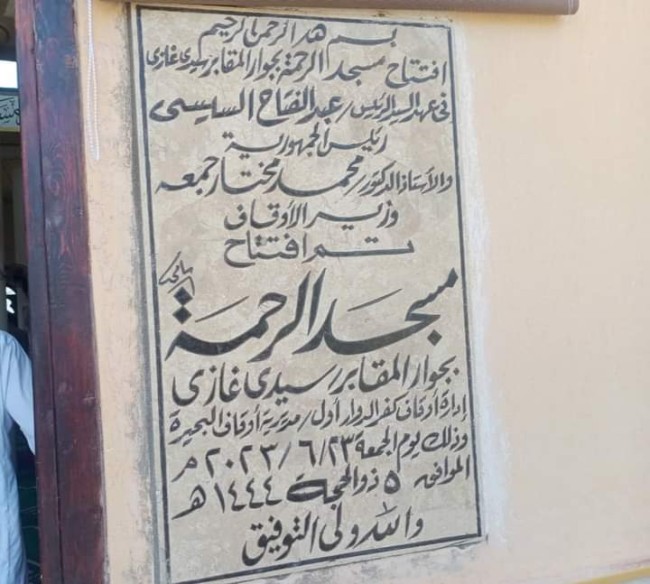 بسم الله الرحمن الرحيم
افتتاح مسجد الرحمة بجوار المقابر سيدى غازى
فى عهد السيد الرئيس / عبد الفتاح السيسى
رئيس الجمهورية
والأستاذ الدكتور / محمد مختار جمعه
وزير الأوقاف
تم افتتاح
مسجد الرحمة
بجوار المقابر / سيدى غازى
إدارة أوقاف كفر الدوار أول / مديرية أوقاف البحيرة
وذلك يوم الجمعة ٢٣ / ٦ / ٢٠٢٣ م
الموافق ٥ ذو الحجة ١٤٤٤ هـ
والله ولى التوفيق